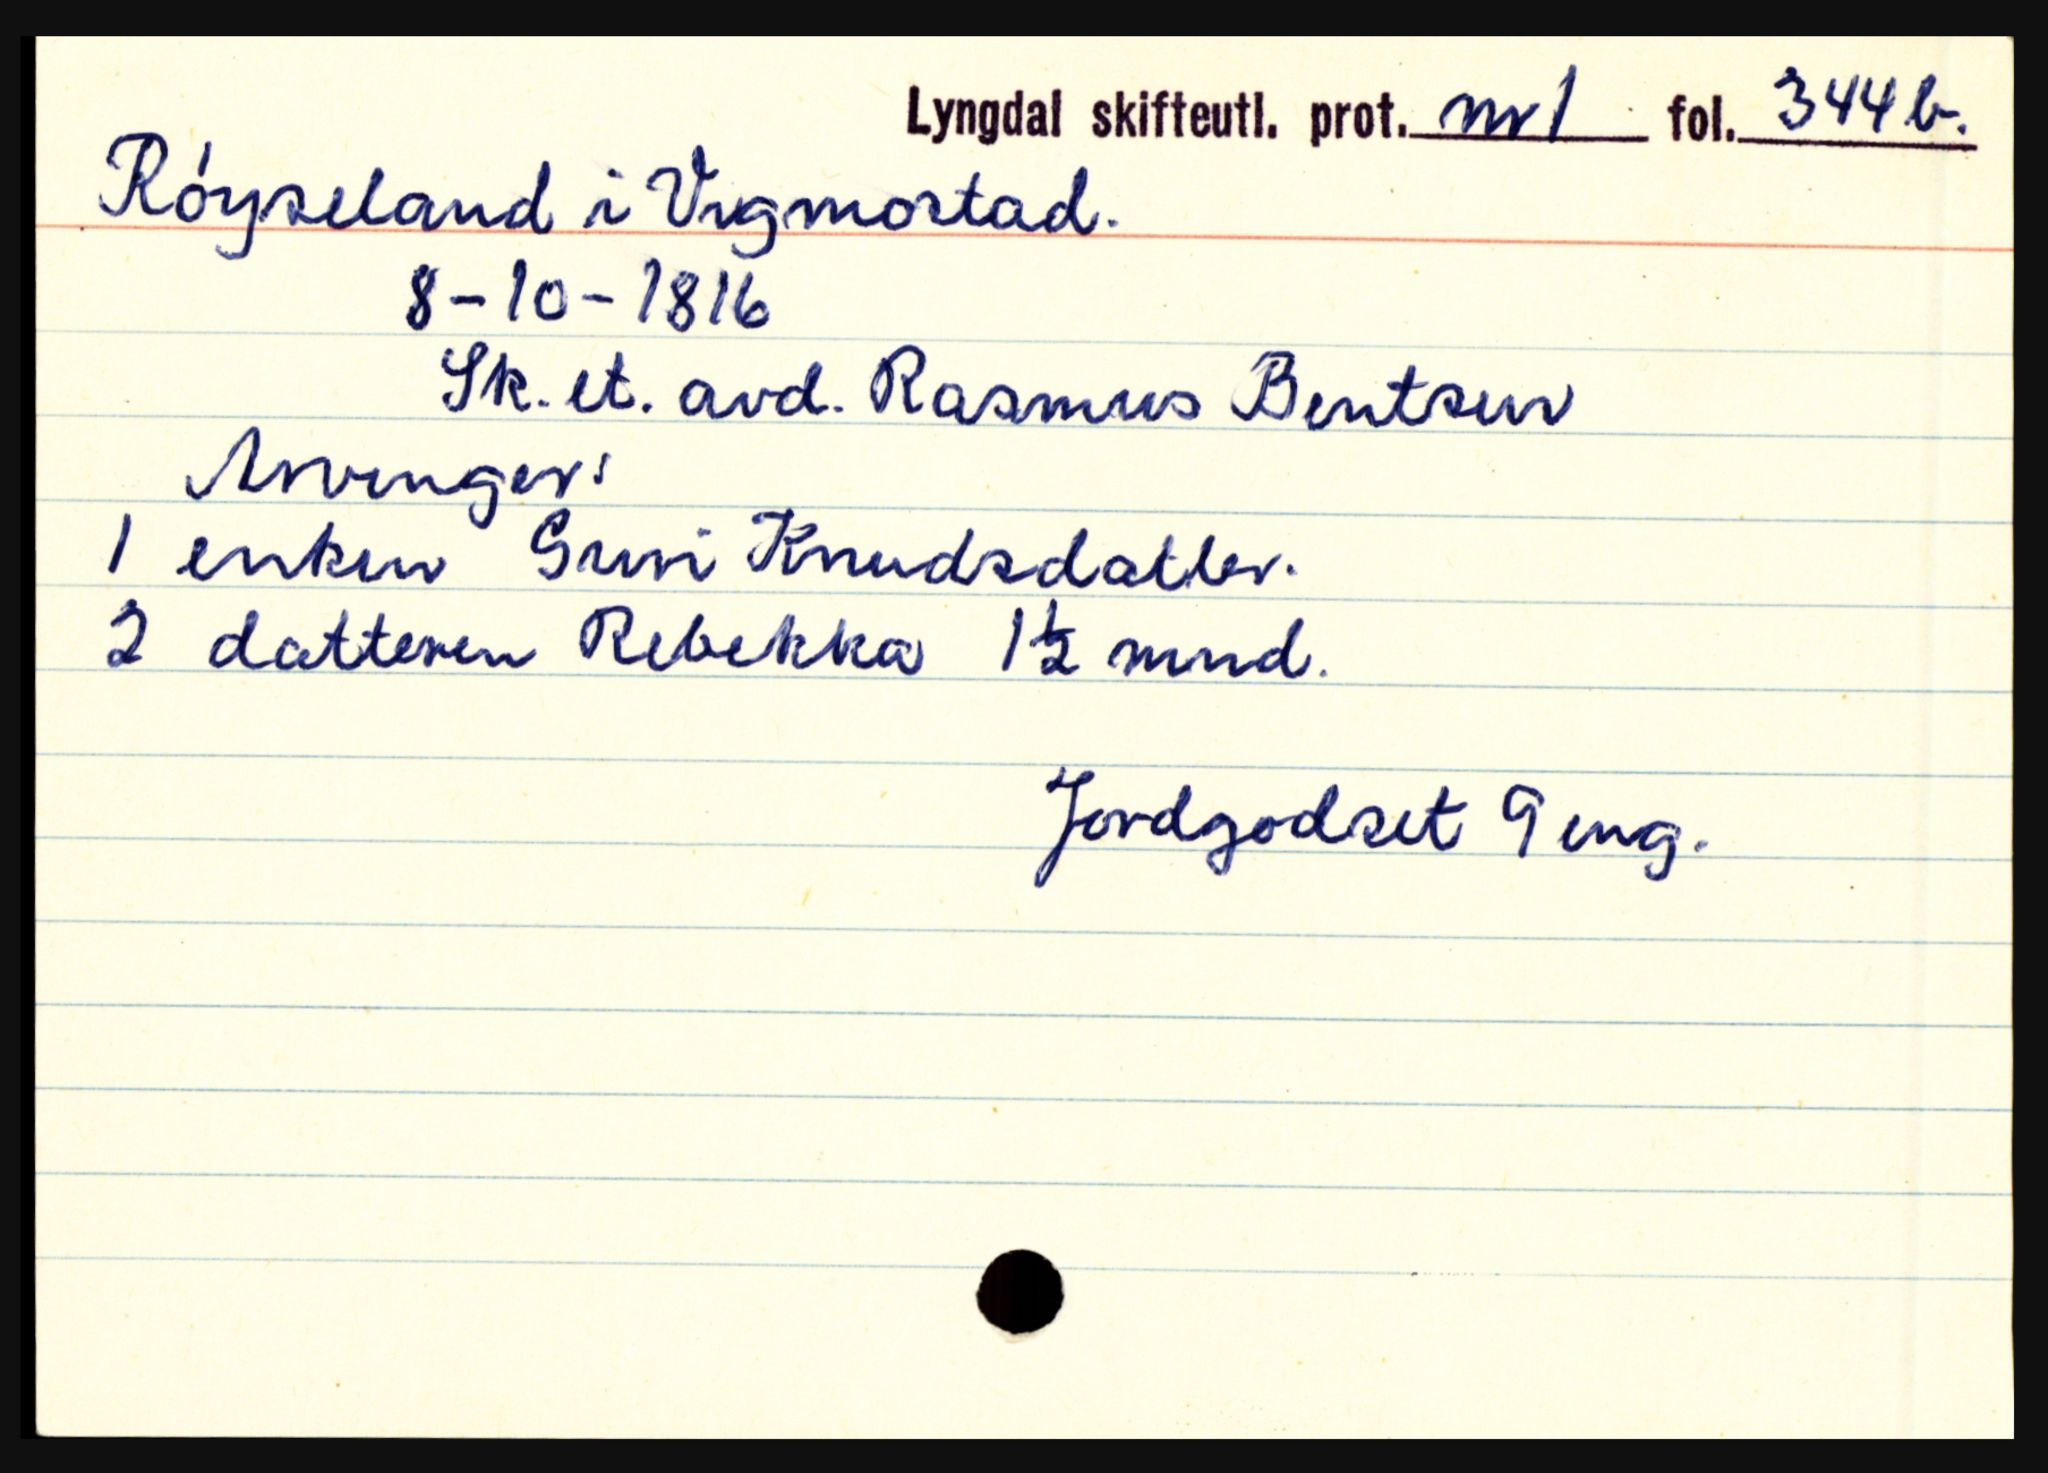 Lyngdal skifteutl. prot. nr 1 fol. 344 b.
Röyseland i Vigmostad.
8-10-1816
Sk. et. avd. Rasmus Bentsen
Arvinger:
1 enken Guri Knudsdatter.
2 datteren Rebekka 1½ mnd.
Jordgodset 9 eng.